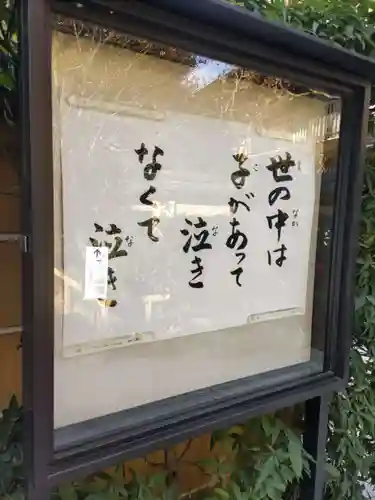 世の中は
子があって
泣き
なくて
泣き